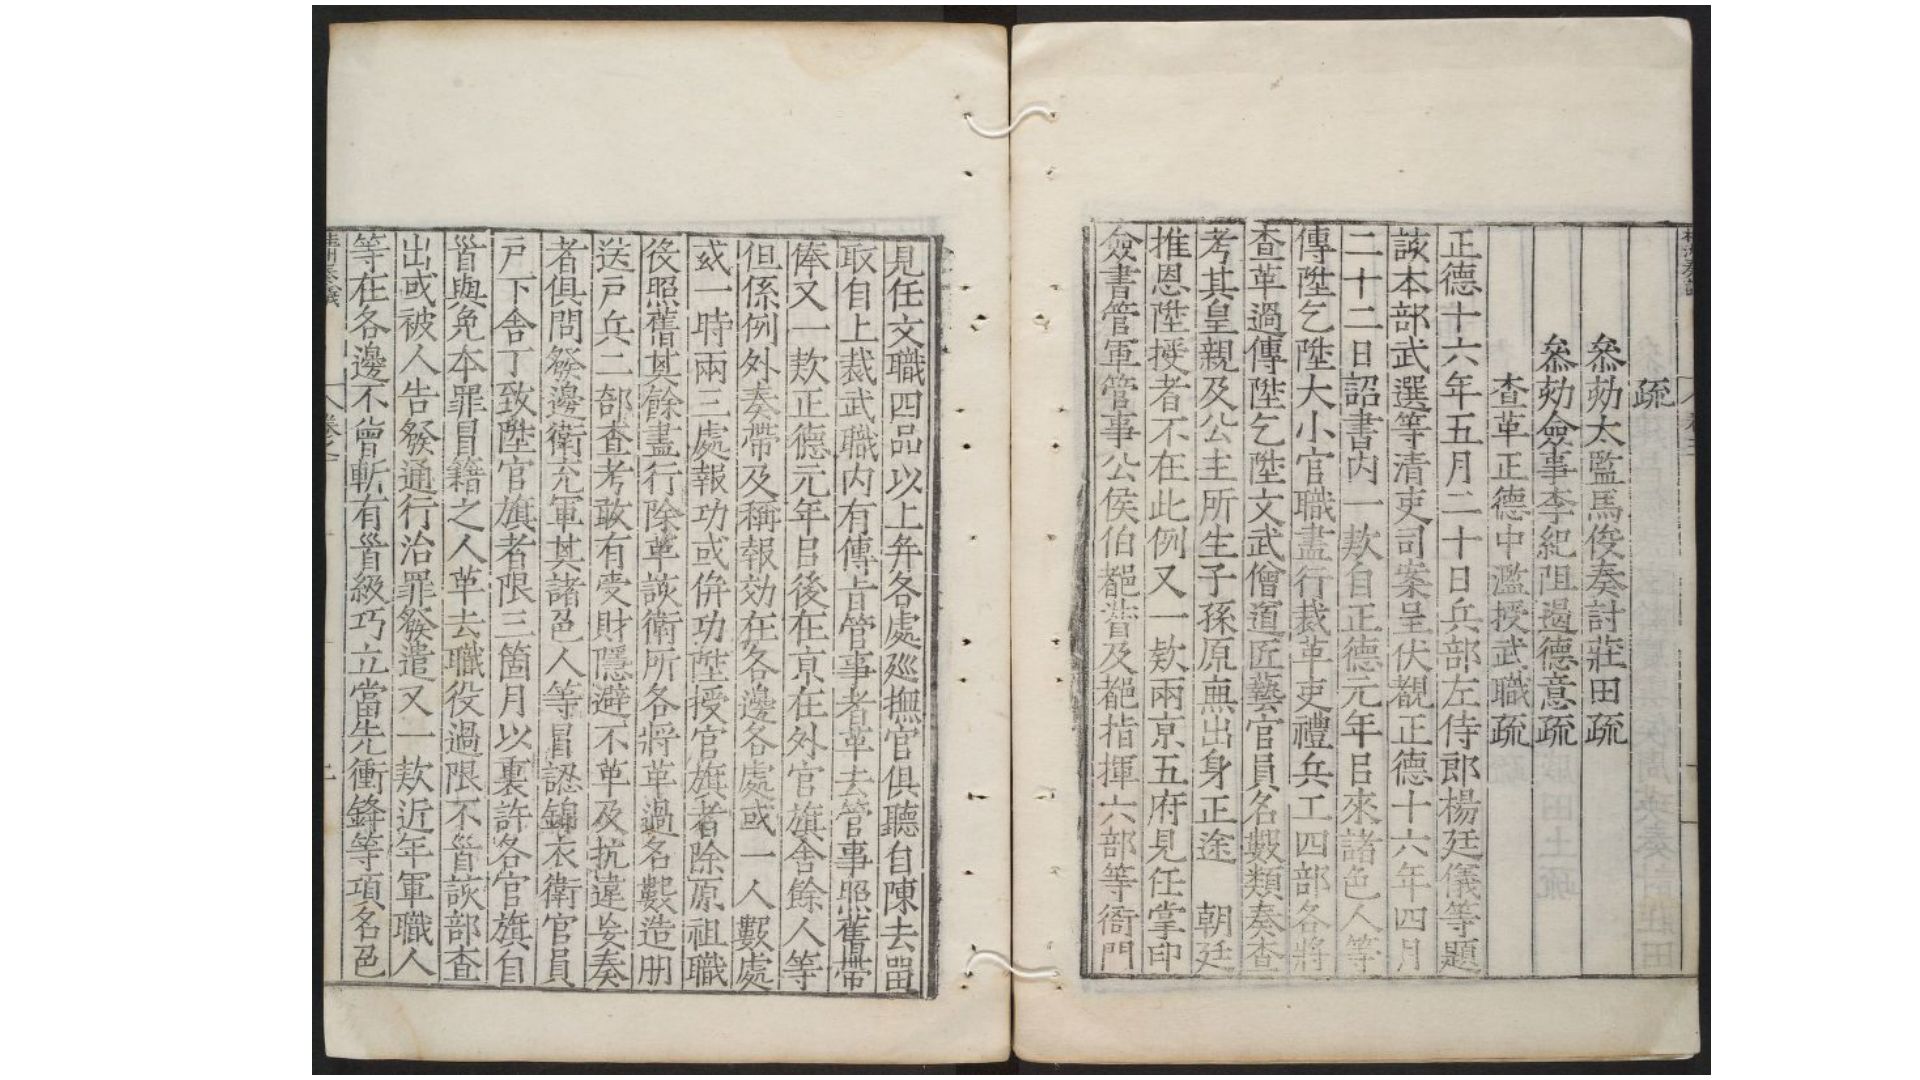 疏
叅劾太監馬俊奏討莊田疏
叅劾僉事李紀阻遏德意疏
查革正德中濫授武職疏
正德十六年五月二十日兵部左侍郎楊廷儀等題
該本部武選等清吏司案呈伏覩正德十六年四月
二十二日詔書内一欵自正德元年㠯來諸色人等
傳陞乞陞大小官職盡行裁革吏禮兵工四部各將
查革過傳陞乞陞文武僧道匠藝官員名數類奏查
考其皇親及公主所生子孫原無出身正途　朝廷
推恩陞授者不在此例又一欵兩京五府見任掌印
僉書管軍管事公侯伯都督及都指揮六部等衙門
見任文職四品以上并各處廵撫官俱聽自陳去留
取自上裁武職内有傳旨管事者革去管事照舊帶
俸又一欵正德元年㠯後在京在外官旗舍餘人等
但係例外奏帶及稱報効在各邊各處或一人數處
或一時兩三處報功或併功陞授官旗者除原祖職
役照舊其餘盡行除革該衛所各將革過名數造册
送戸兵二部查考敢有受財隱避不革及抗違妄奏
者俱問發邊衛充軍其諸色人等冒認錦衣衛官員
戸下舍丁致陞官旗者限三箇月以裏許各官旗自
首與免本罪冒籍之人革去職役過限不首該部查
出或被人告發通行治罪發遣又一欵近年軍職人
等在各邊不曾斬有首級巧立當先衝鋒等項名色
桂洲奏議